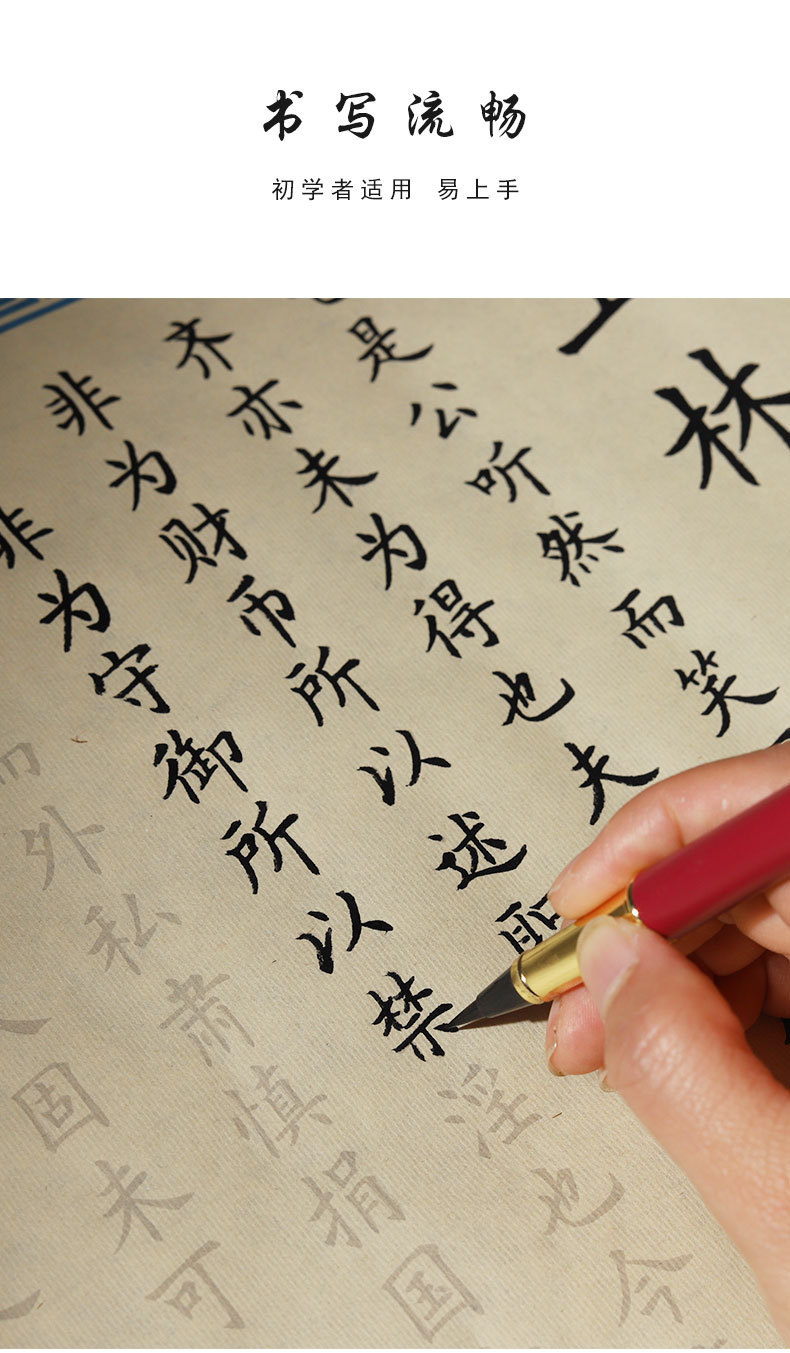 书写流畅
初学者适用 易上手
上林
是公听然而笑
齐亦未为得也夫
非为财币所以述
非为守御所以禁淫也今
而外私肃慎捐国
固未可